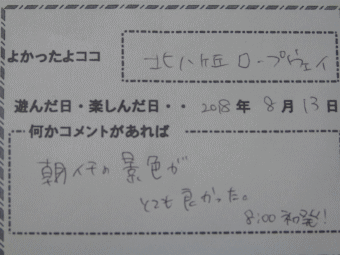 よかったよココ 北八ヶ岳ロープウェイ
遊んだ日・楽しんだ日・・ 2018年8月13日
何かコメントがあれば
朝イチの景色が
とても良かった。
8:00 初発!